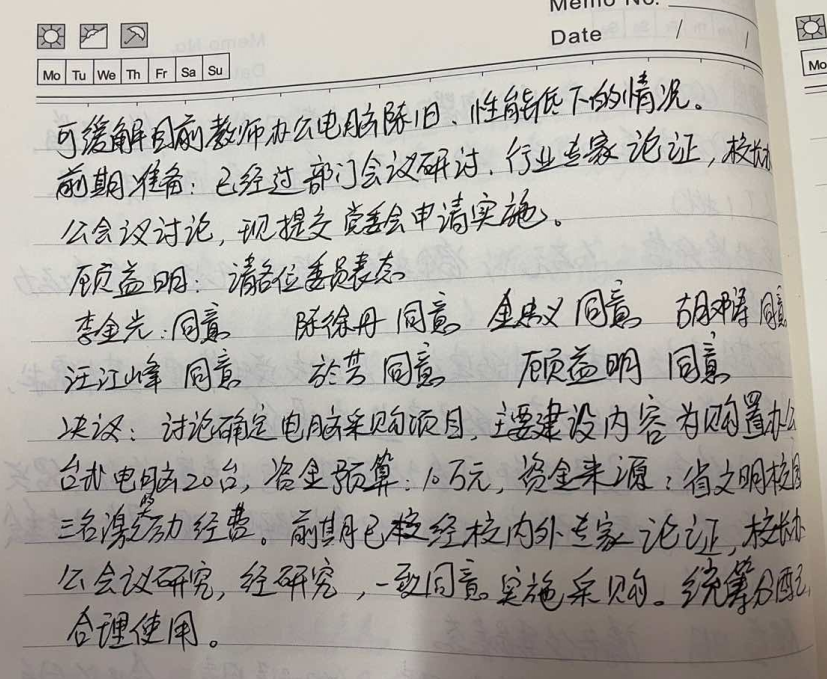 Memo No.
Date / /
Mo Tu We Th Fr Sa Su
Mo
可缓解目前教师办公电脑陈旧、性能低下的情况。
前期准备：已经过部门会议研讨、行业专家论证，校长办
公会议讨论，现提交党委会申请实施。
顾益明：请各位委员表态
李金光：同意 陈徐丹 同意 金忠义 同意 胡邓涛 同意
汪江峰 同意 於芳 同意 顾益明 同意
决议：讨论确定电脑采购项目，主要建设内容为购置办公
台式电脑20台，资金预算：10万元，资金来源：省文明校园
三名激励经费。前期已经校内外专家论证，校长办
公会议研究，经研究，一致同意实施采购。统筹分配，
合理使用。